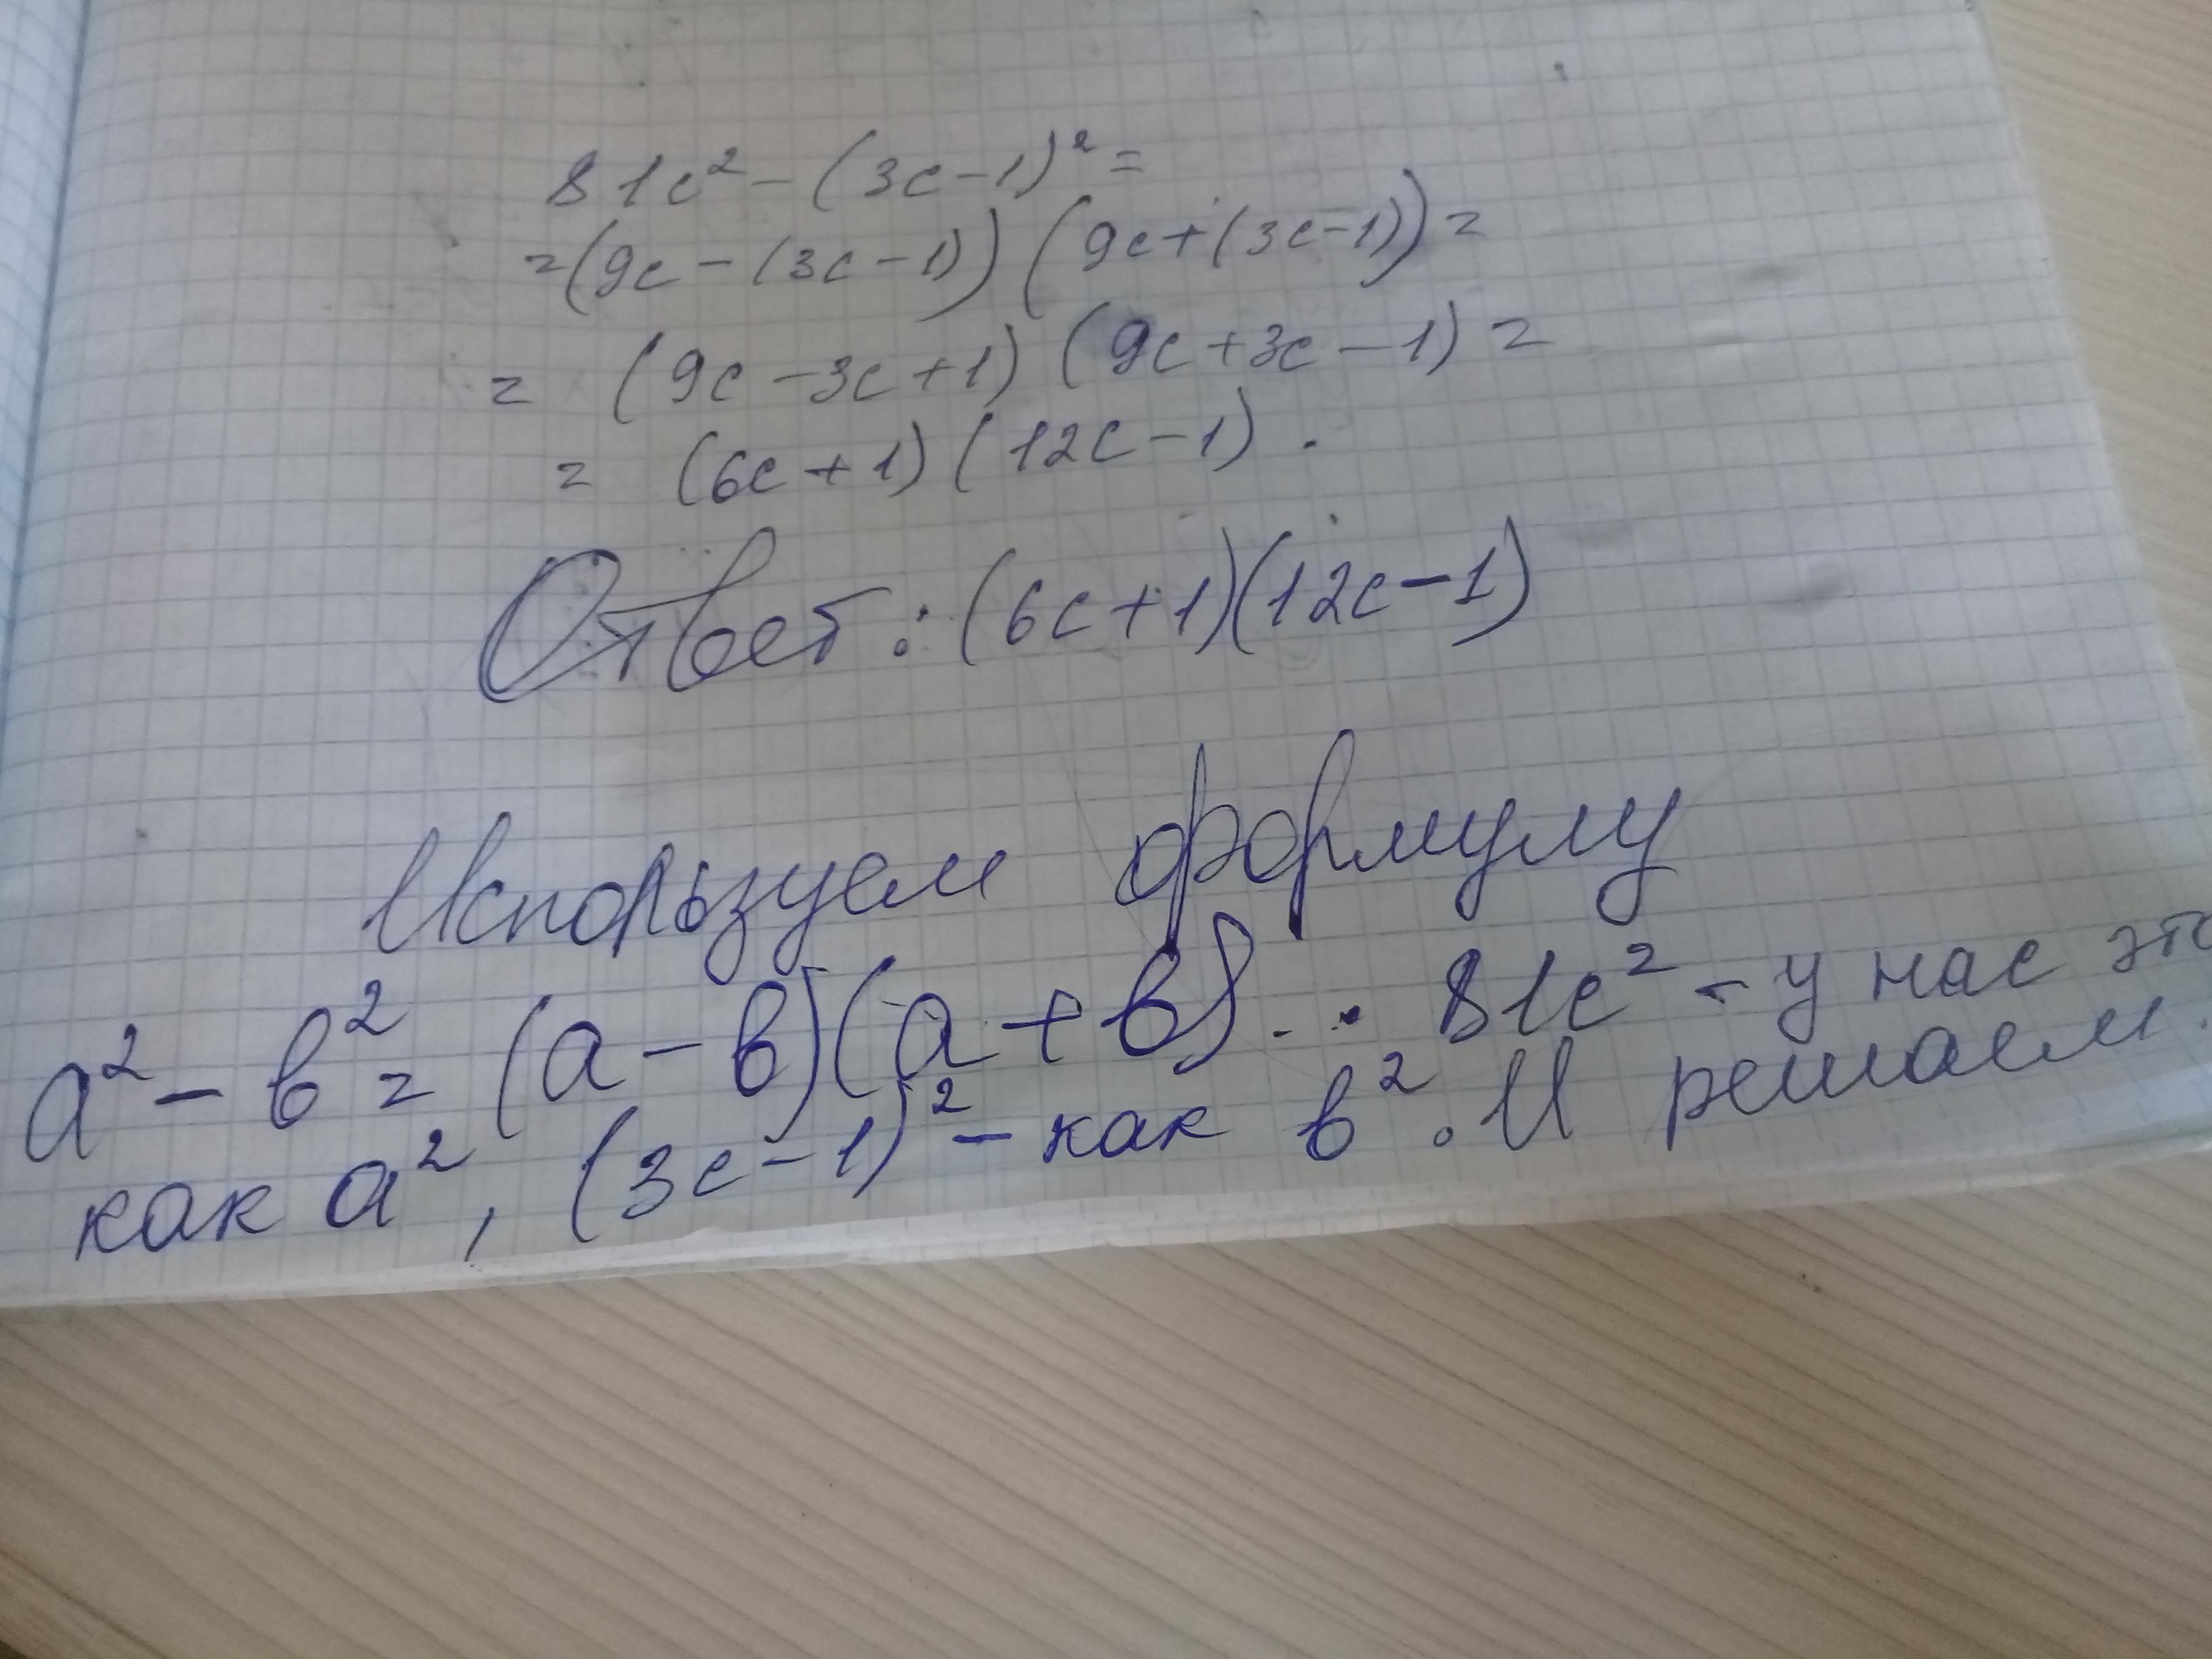 81c² - (3c-1)² =
= (9c - (3c-1)) (9c + (3c-1)) =
= (9c - 3c + 1) (9c + 3c - 1) =
= (6c + 1) (12c - 1) .
Ответ: (6c+1)(12c-1)
Используем формулу
a² - b² = (a - b)(a + b). 81c² - у нас это
как a², (3c-1)² - как b². И решаем.